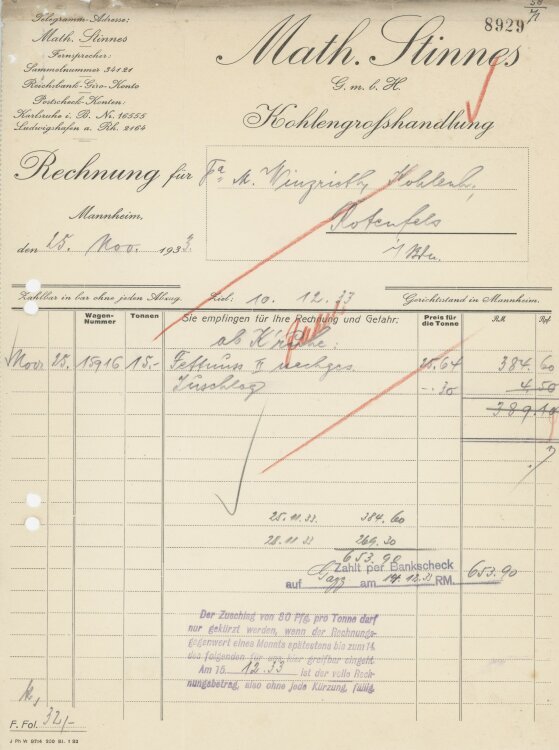 Telegramm-Adresse:
Math. Stinnes
Fernsprecher:
Sammelnummer 34121
Reichsbank-Giro-Konto
Postscheck-Konten:
Karlsruhe i. B. No. 16555
Ludwigshafen a. Rh. 2164
8929
Math. Stinnes
G. m. b. H.
Kohlengroßhandlung
Rechnung für
Fa. M.
Rotenfels
Mannheim,
den 25. Nov. 1933
Zahlbar in bar ohne jeden Abzug. Ziel: 10. 12. 33 Gerichtsstand in Mannheim.
Wagen-Nummer Tonnen Sie empfingen für Ihre Rechnung und Gefahr: Preis für die Tonne RM. Rpf.
ab K'ruhe:
Nov. 25. 15916 15.- Fettnuss II nachges. 25.64 384.60
Zuschlag -.30 4.50
389.10
25.11.33. 384.60
28.11.33. 269.30
653.90
Zahlt per Bankscheck
auf am 14.12.33 RM. 653.90
Der Zuschlag von 30 Pfg. pro Tonne darf
nur gekürzt werden, wenn der Rechnungs-
gegenwert eines Monats spätestens bis zum 14.
des folgenden für uns hier greifbar eingeht.
Am 15. 12.33 ist der volle Rech-
nungsbetrag, also ohne jede Kürzung, fällig.
F. Fol. 32/-